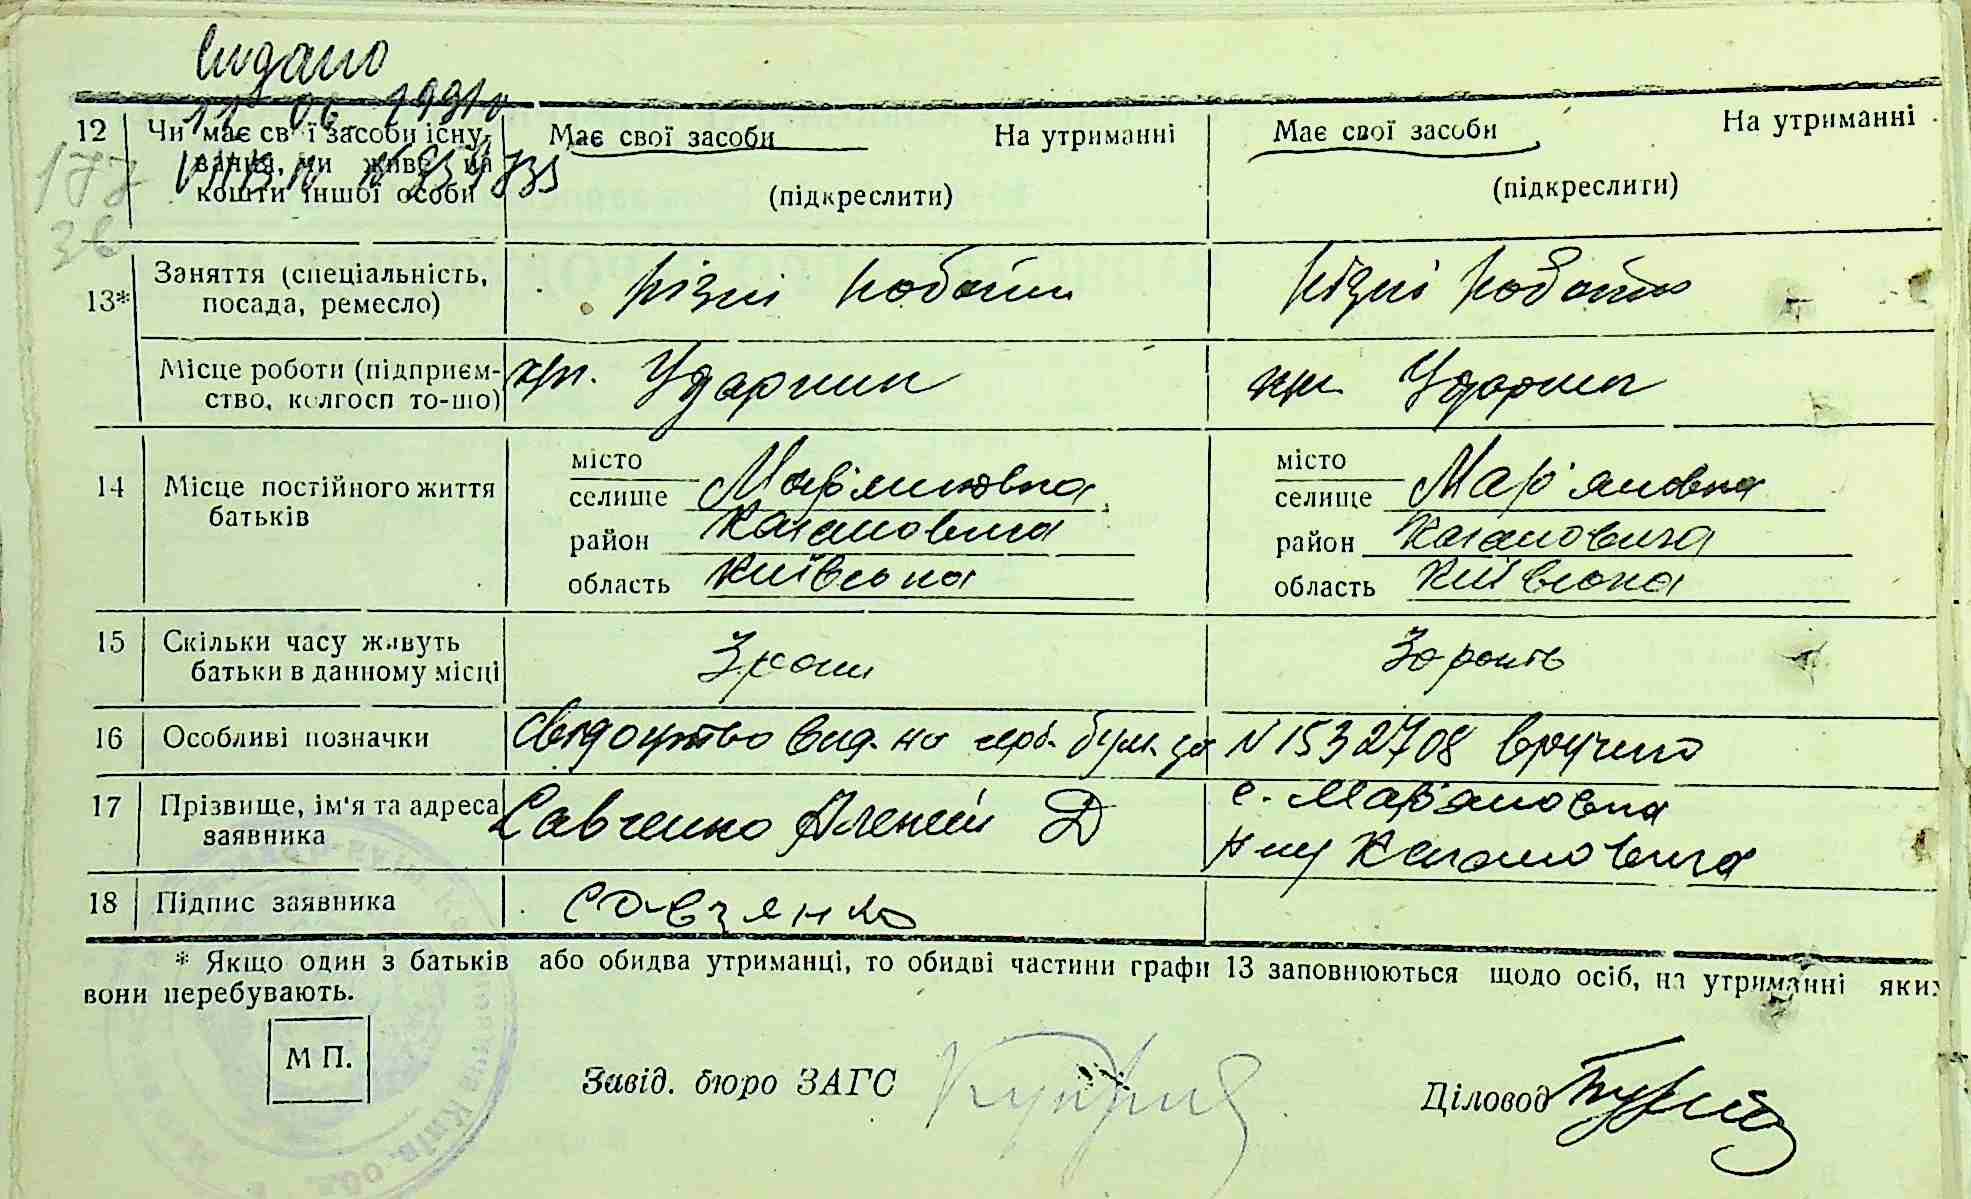 Видано
11 06 1991р
177
зв
12 Чи має св ї засоби існу- Має свої засоби На утриманні Має свої засоби На утриманні
вання, чи живе на
кошти іншої особи (підкреслити) (підкреслити)
13* Заняття (спеціальність, різні роботи різні роботи
посада, ремесло)
Місце роботи (підприєм- Ударник Ударник
ство, колгосп то-що)
14 Місце постійного життя батьків
місто
селище Мар'яновка
район Кагановича
область Київська
місто
селище Мар'яновка
район Кагановича
область Київська
15 Скільки часу живуть 3 роки 30 років
батьки в данному місці
16 Особливі позначки Свідоцтво вид. на герб. бум. за N 1532708 вручено
17 Прізвище, ім'я та адреса Савченко Алексій Д с. Мар'яновка
заявника р-ну Кагановича
18 Підпис заявника Савченко
* Якщо один з батьків або обидва утриманці, то обидві частини графи 13 заповнюються щодо осіб, на утриманні яких
вони перебувають.
М П. Завід. бюро ЗАГС Діловод